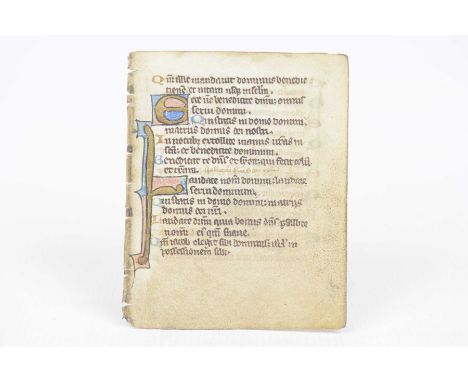 Qm illic mandauit dominus benedic
tionē et uitam usq; in sclm.
Ecce nc benedicite dnm: omnes
serui domini.
Qui statis in domo domini:
in atriis domus dei nostri.
In noctib; extollite manus uras in
scā: et benedicite dominum.
Benedicat te dns ex syon: qui fecit celū
et terram.
Laudate nom domini: laudate
serui dominum.
Qui statis in domo domini: in atriis
domus dei nri.
Laudate dnm quia bonus dns: psallite
nomi ei qm suaue.
Qm iacob elegit sibi dominus: isrl in
possessionem sibi.